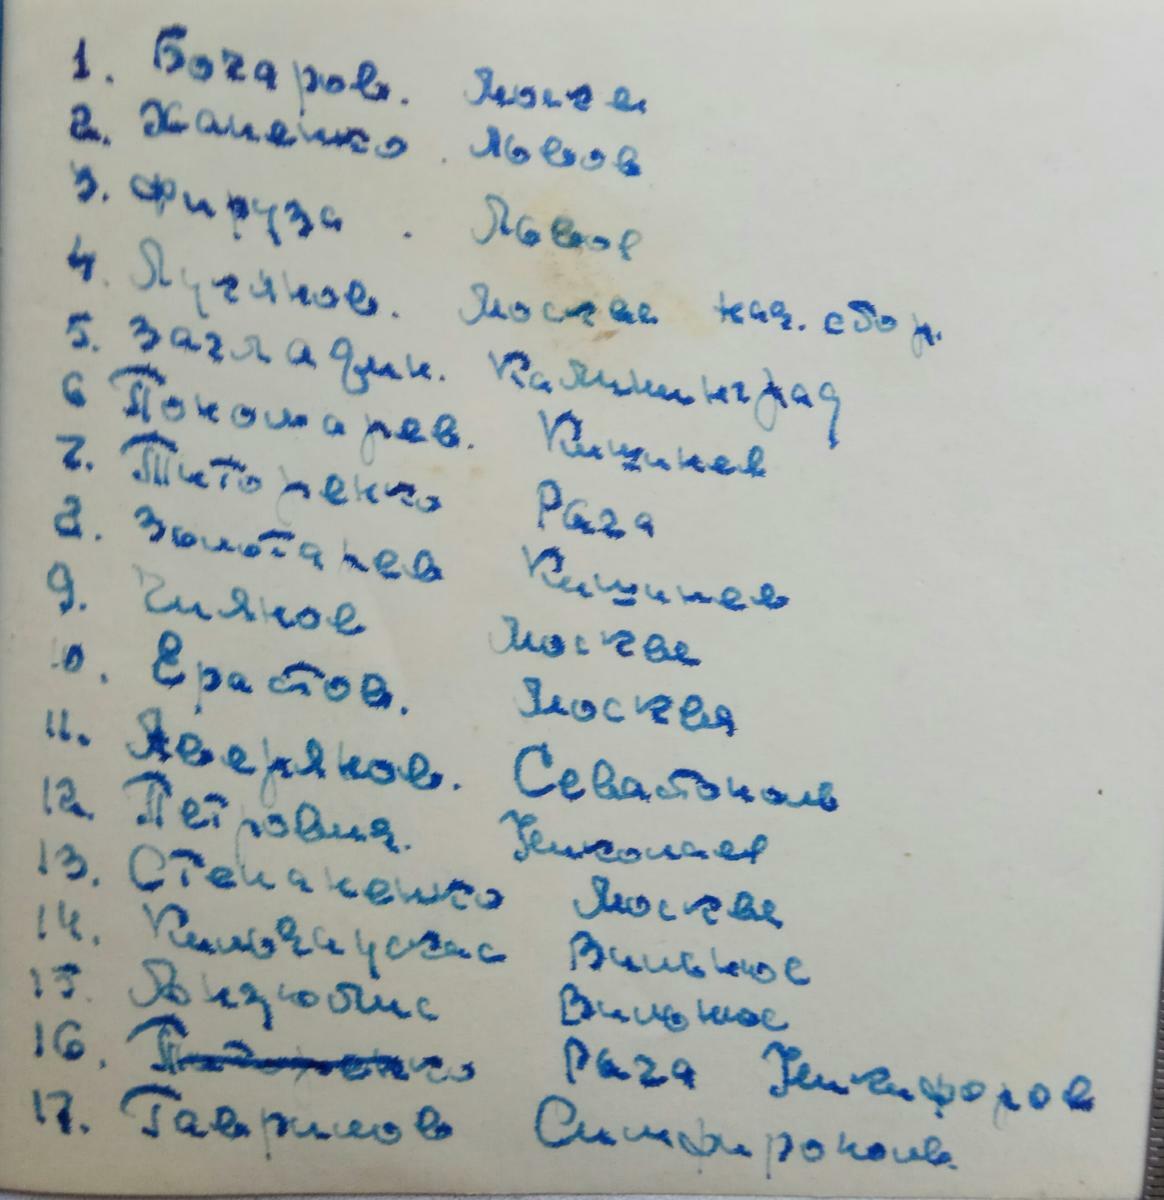 1. Бочаров. Москва
2. Ханенко. Львов
3. Фируза. Львов
4. Лугянов. Москва нач. сбор.
5. Загладин. Калининград
6 Пономарев. Кишинев
7. Титоренко Рига
8. Золотарев Кишинев
9. Москва
10. Ерастов. Москва
11. Аверянов. Севастополь
12. Петрович. Николаев
13. Степаненко Москва
14. Вильнюс
15. Вильнюс
16. Рига Никифоров
17. Гаврилов Симфирополь.